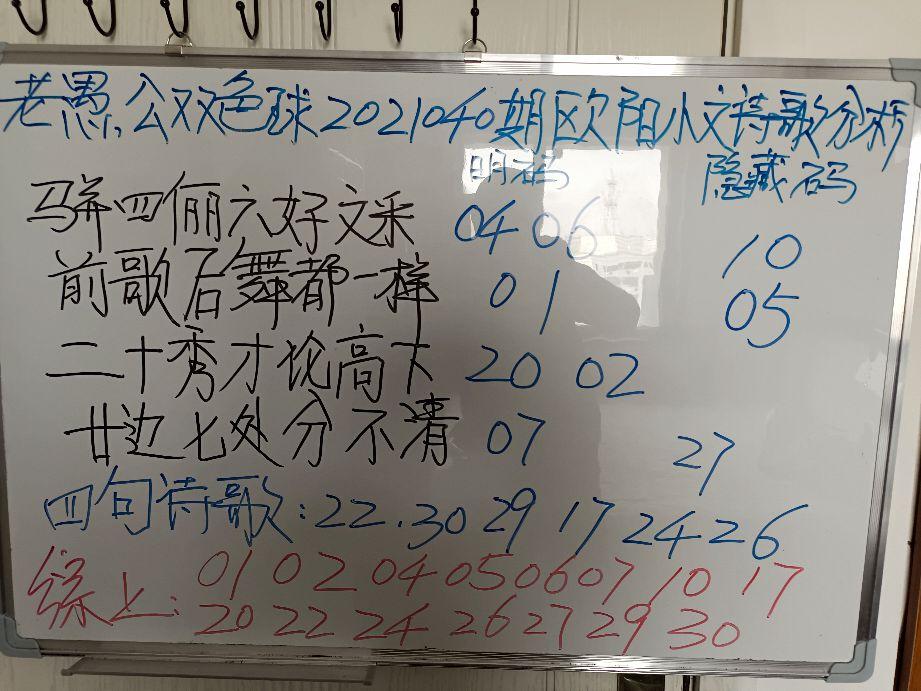 老愚公双色球2021040期欧阳小文诗歌分析
明码 隐藏码
骈四俪六好文采 04 06 10
前歌后舞都一样 01 05
二十秀才论高下 20 02
廿边七处分不清 07 27
四句诗歌:22.30 29 17 24 26
综上: 01 02 04 05 06 07 10 17
20 22 24 26 27 29 30